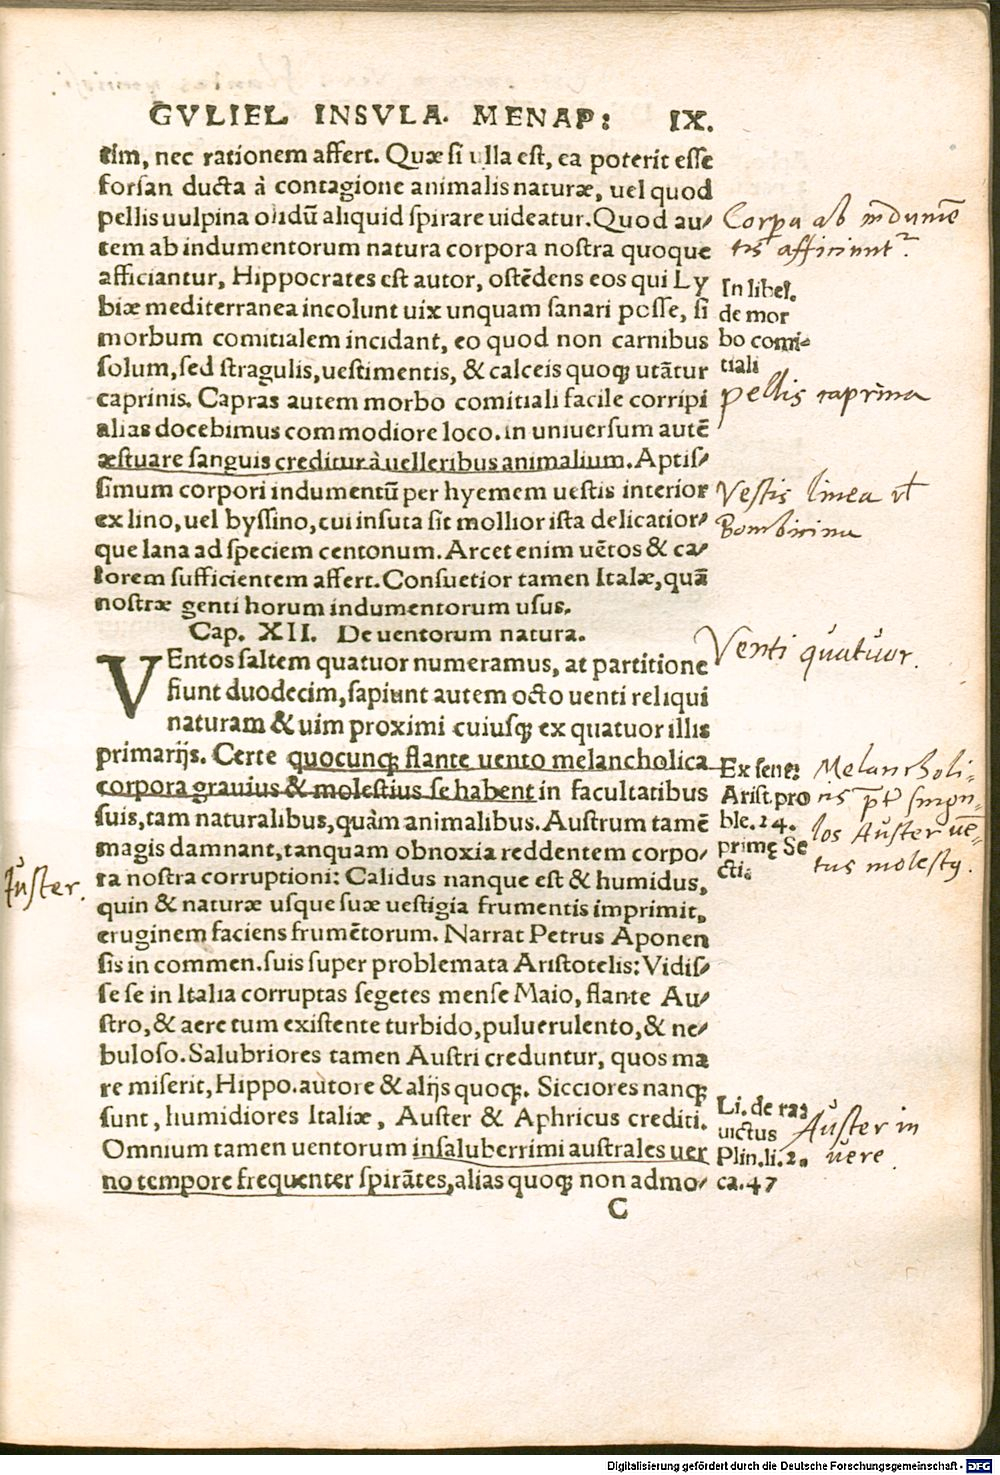 GVLIEL INSVLA. MENAP: IX.
tim, nec rationem affert. Quæ si ulla est, ea poterit esse
forsan ducta à contagione animalis naturæ, uel quod
pellis uulpina olidū aliquid spirare uideatur. Quod au-
tem ab indumentorum natura corpora nostra quoque
afficiantur, Hippocrates est autor, ostēdens eos qui Ly
biæ mediterranea incolunt uix unquam sanari posse, si
morbum comitialem incidant, eo quod non carnibus
solum, sed stragulis, uestimentis, & calceis quoqꝫ utātur
caprinis. Capras autem morbo comitiali facile corripi
alias docebimus commodiore loco. in uniuersum autē
æstuare sanguis creditur à uelleribus animalium. Aptis-
simum corpori indumentū per hyemem uestis interior
ex lino, uel byssino, cui insuta sit mollior ista delicatior-
que lana ad speciem centonum. Arcet enim uētos & ca-
lorem sufficientem affert. Consuetior tamen Italæ, quā
nostræ genti horum indumentorum usus.
Corpa ab īndumē
tis afficiunt².
In libel.
de mor
bo comi-
tiali
pellis caprina
Vestis linea vł
Bombicina
Cap. XII. De uentorum natura.
VEntos saltem quatuor numeramus, at partitione
fiunt duodecim, sapiunt autem octo uenti reliqui
naturam & uim proximi cuiusqꝫ ex quatuor illis
primarijs. Certe quocunqꝫ flante uento melancholica
corpora grauius & molestius se habent in facultatibus
suis, tam naturalibus, quàm animalibus. Austrum tamē
magis damnant, tanquam obnoxia reddentem corpo-
ra nostra corruptioni: Calidus nanque est & humidus,
quin & naturæ usque suæ uestigia frumentis imprimit,
eruginem faciens frumētorum. Narrat Petrus Aponen
sis in commen. suis super problemata Aristotelis: Vidis-
se se in Italia corruptas segetes mense Maio, flante Au-
stro, & aere tum existente turbido, puluerulento, & ne-
buloso. Salubriores tamen Austri creduntur, quos ma
re miserit, Hippo. autore & alijs quoqꝫ. Sicciores nanqꝫ
sunt, humidiores Italiæ, Auster & Aphricus crediti.
Omnium tamen uentorum insaluberrimi australes uer
no tempore frequenter spirātes, alias quoqꝫ non admo-
C
Venti quatuor.
Ex sene:
Arist. pro
ble. 24.
primę Se
cti.
Melancholi-
cis singu-
los Auster uē-
tus molestꝰ.
Auster.
Li. de ra:
uictus
Plin. li. 2.
ca. 47
Auster in
uere.
Digitalisierung gefördert durch die Deutsche Forschungsgemeinschaft - DFG